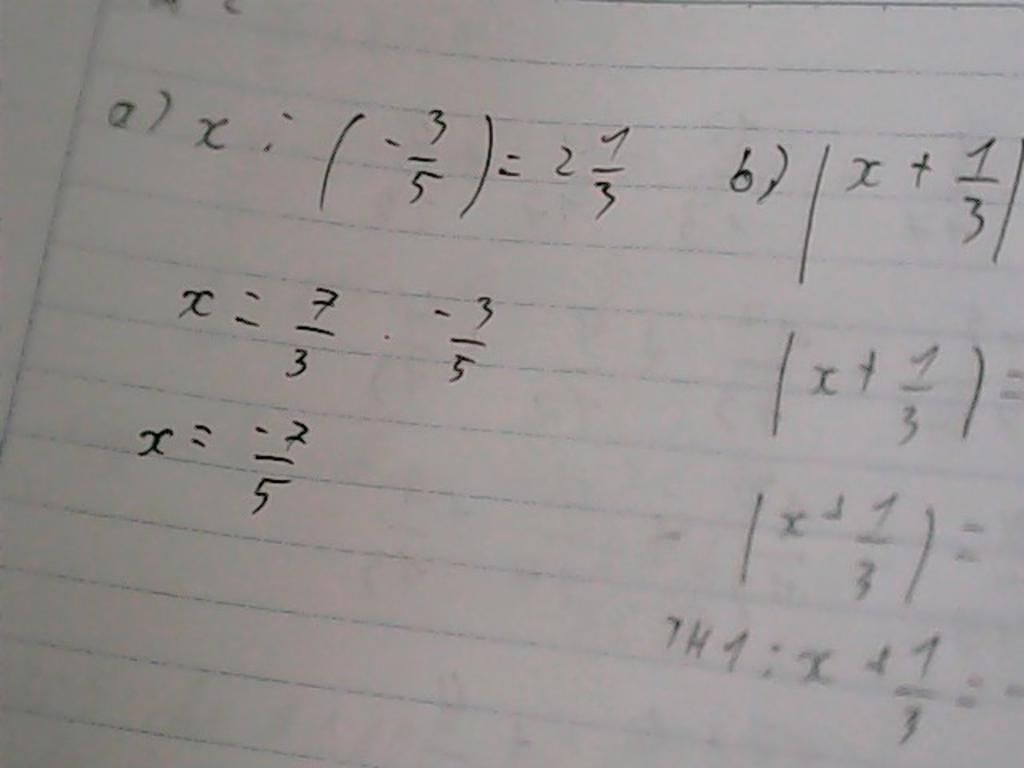 a) x : (-3/5) = 2 1/3
x = 7/3 . -3/5
x = -7/5
b) |x + 1/3|
|x + 1/3| =
|x + 1/3| =
TH1 : x + 1/3 =